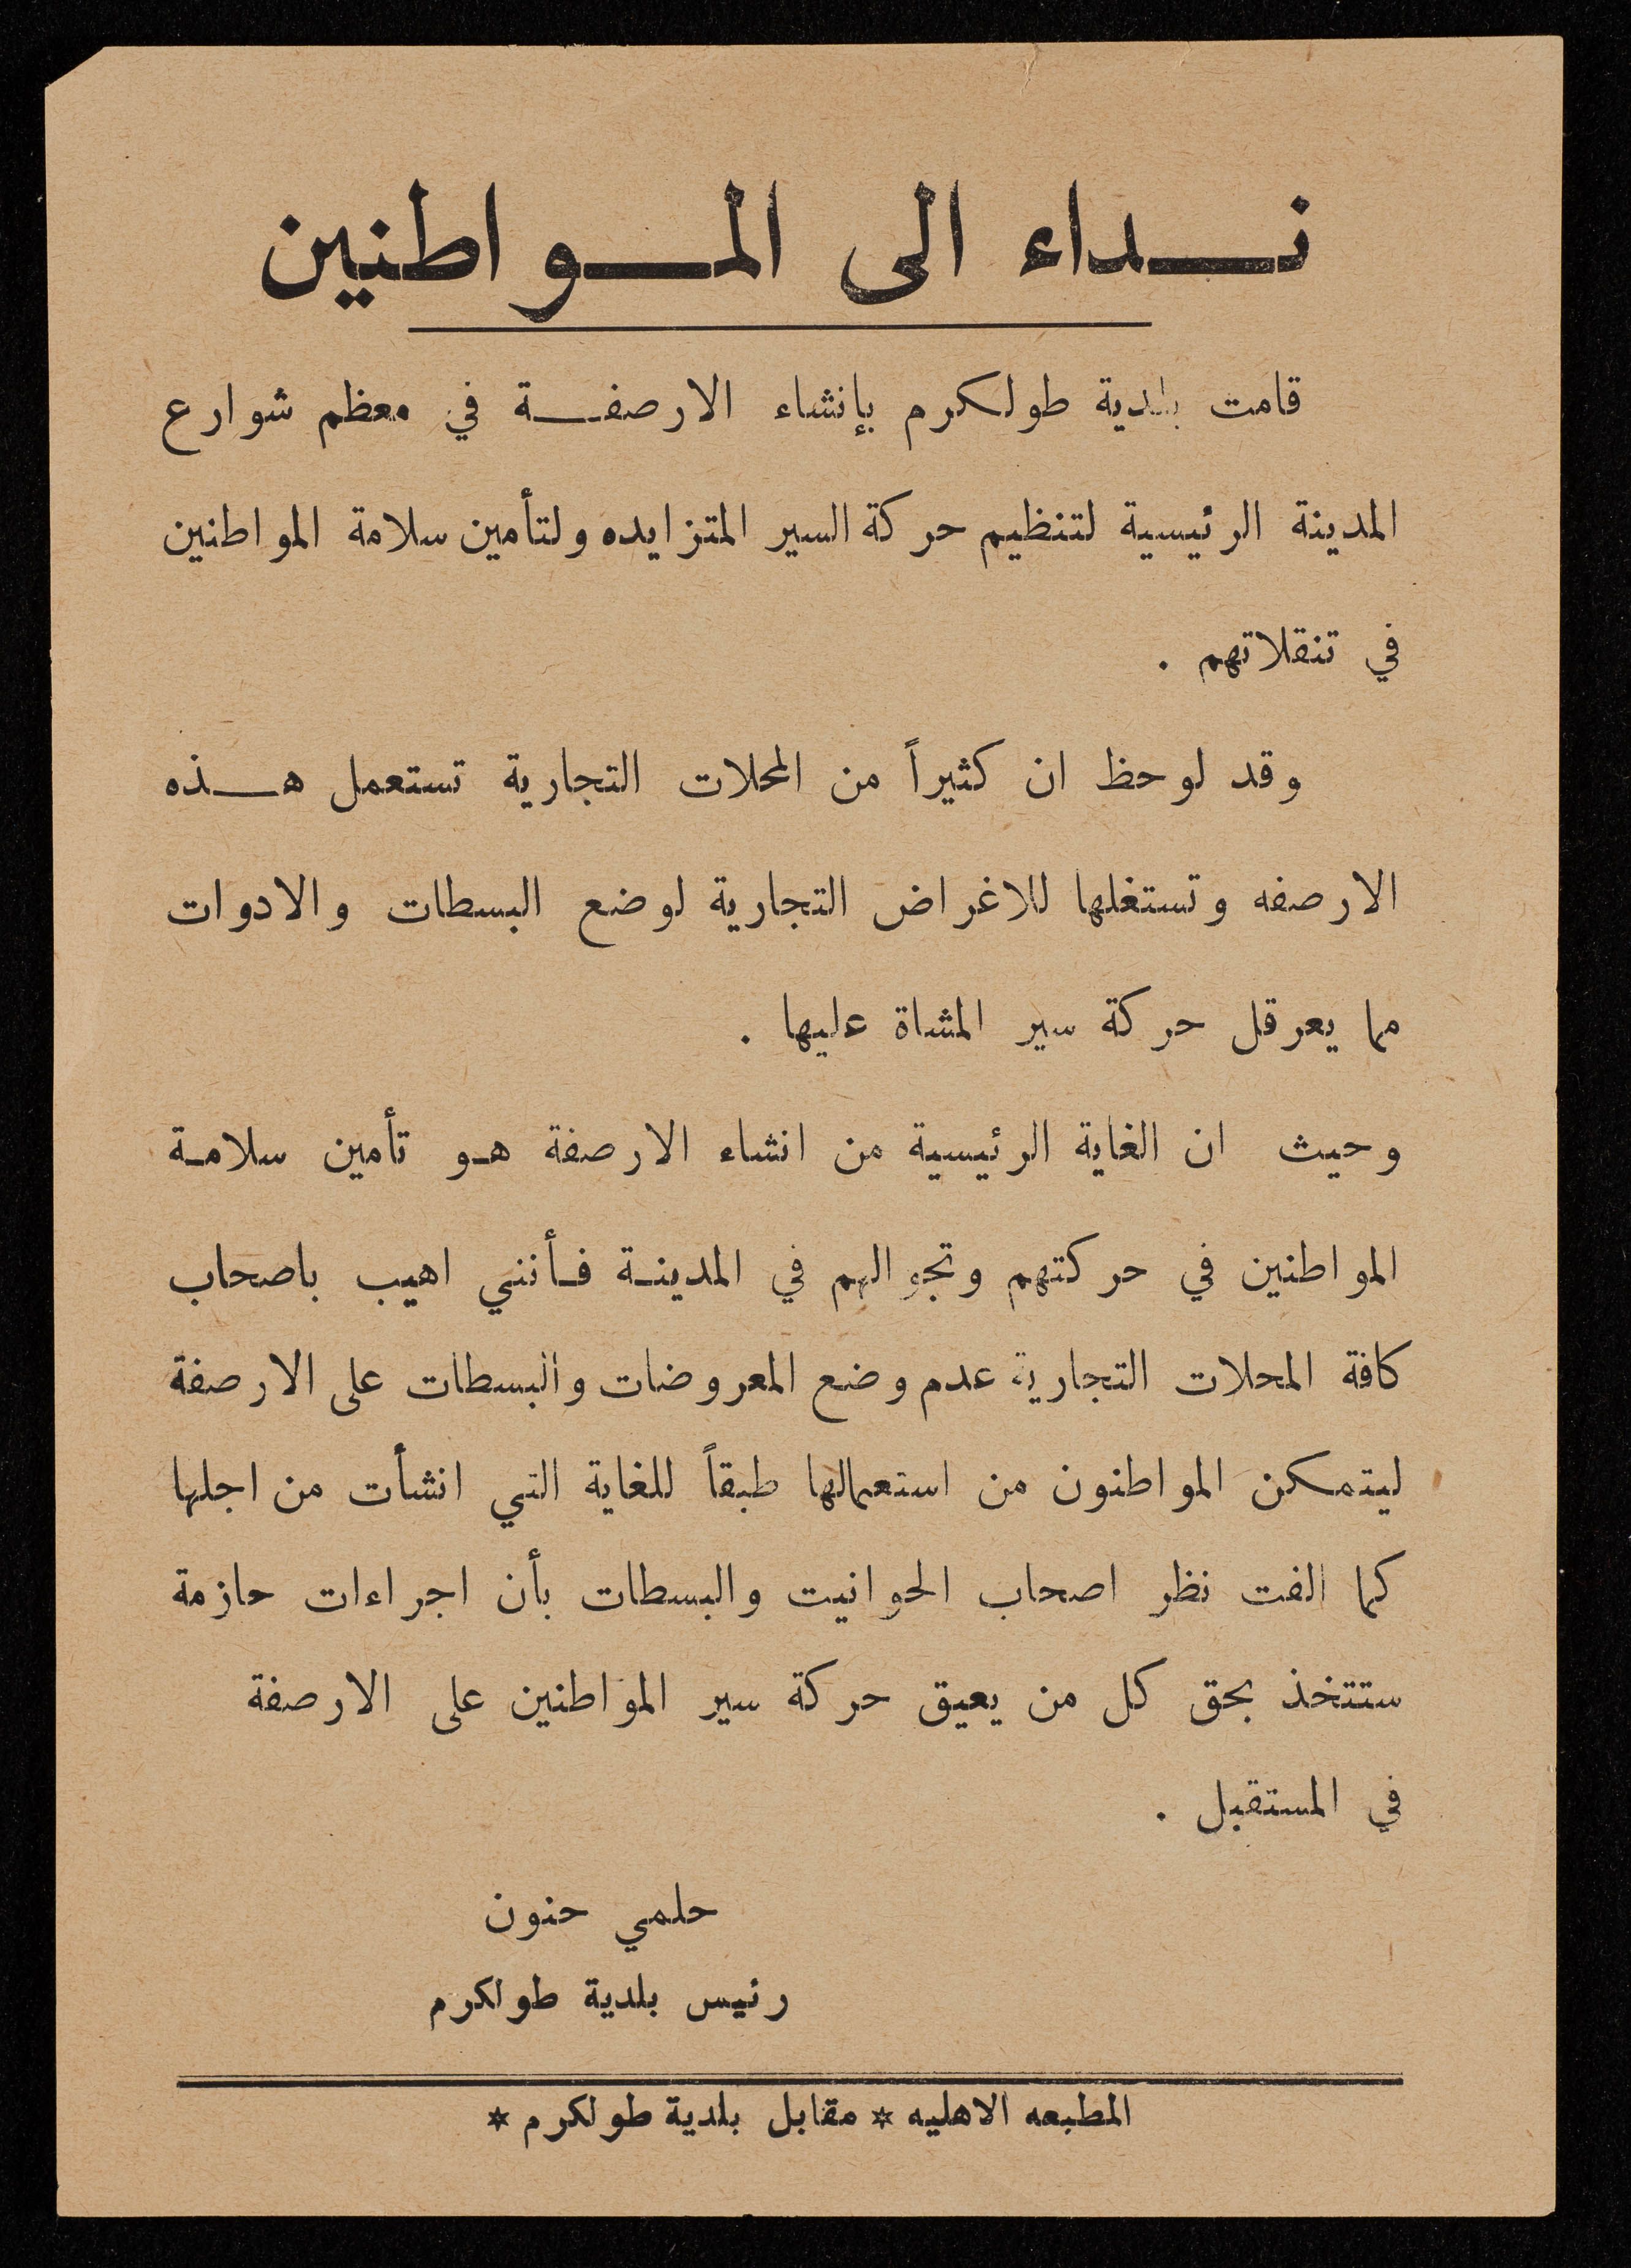 نداء الى المواطنين
قامت بلدية طولكرم بإنشاء الارصفة في معظم شوارع
المدينة الرئيسية لتنظيم حركة السير المتزايده ولتأمين سلامة المواطنين
في تنقلاتهم .
وقد لوحظ ان كثيراً من المحلات التجارية تستعمل هذه
الارصفه وتستغلها للاغراض التجارية لوضع البسطات والادوات
مما يعرقل حركة سير المشاة عليها .
وحيث ان الغاية الرئيسية من انشاء الارصفة هو تأمين سلامة
المواطنين في حركتهم وتجوالهم في المدينة فأنني اهيب باصحاب
كافة المحلات التجارية عدم وضع المعروضات والبسطات على الارصفة
ليتمكن المواطنون من استعمالها طبقاً للغاية التي انشأت من اجلها
كما الفت نظر اصحاب الحوانيت والبسطات بأن اجراءات حازمة
ستتخذ بحق كل من يعيق حركة سير المواطنين على الارصفة
في المستقبل .
حلمي حنون
رئيس بلدية طولكرم
المطبعه الاهليه * مقابل بلدية طولكرم *